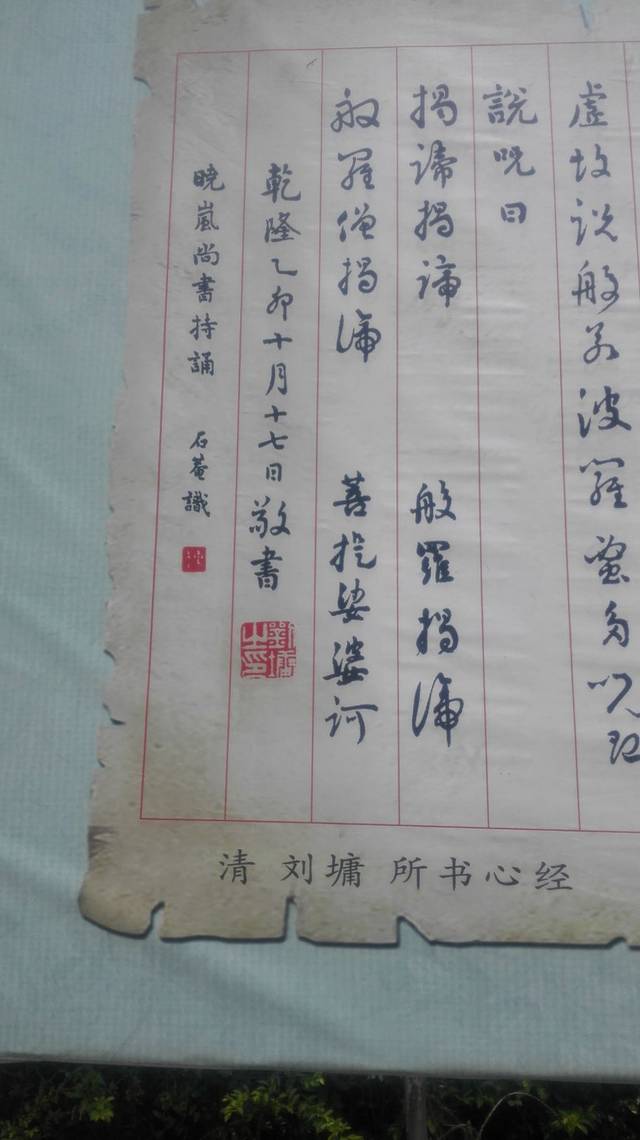 虛故說般若波羅蜜多呪即
說呪曰
揭諦揭諦 般羅揭諦
般羅僧揭諦 菩提娑婆訶
乾隆乙卯十月十七日敬書
劉墉之印
曉嵐尚書持誦 石菴識
清 刘墉 所书心经